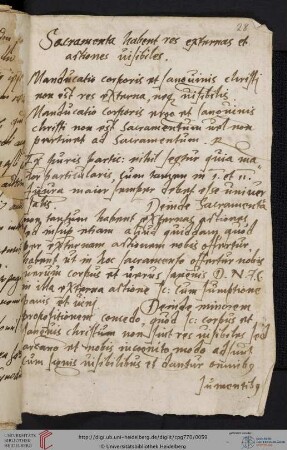 28
Sacramenta habent res externas et
actiones uisibiles.
Manducatio corporis et sanguinis christi
non est res externa, neq uisibilis
Manducatio corporis ergo et sanguinis
christi non est sacramentum uel non
pertinet ad Sacramentum.
Ex puris partic: nihil sequitur quia ma
ior particularis, cum tamen in 1. et 11.
figura maior semper debet esse uniuer
salis. Deinde Sacramenta
non tantum habent externas actiones
sed insup etiam aliud quiddam quod
per externam actionem nobis offertur,
habent ut in hoc sacramento offertur nobis
uerum corpus et uerus sanguis D. N. J. C.
in ista externa actione sc: cum sumptione
panis et uini Deinde minorem
propositionem concedo, quod sc: corpus et
sanguis christi non sunt res uisibiles, sed
arcano et nobis incognito modo adsunt
cum signis uisibilibus et dantur omnibus
sumentibus
UNIVERSITÄTS-
BIBLIOTHEK
HEIDELBERG
http://digi.ub.uni-heidelberg.de/diglit/cpg770/0059
© Universitätsbibliothek Heidelberg